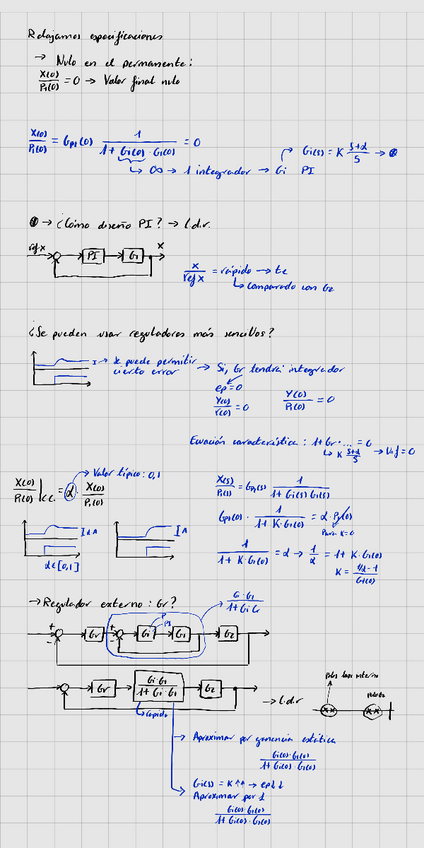 Relajamos especificaciones
→ Nulo en el permanente:
X(0)/P₁(0) = 0 → Valor final nulo
X(0)/P₁(0) = Gp₁(0) 1/(1 + Gi(0) · G₁(0)) = 0
Gi(s) = K (s+d)/s →
↳ ∞ → 1 integrador → Gi PI
→ ¿Cómo diseño PI? → L.dir.
ref x PI G₁ X
X/ref x = rápido → te
↳ comparado con G₂
¿Se pueden usar reguladores más sencillos?
I → Se puede permitir cierto error → Si, Gr tendrá integrador
ep=0
Y(0)/Y(0) = 0 Y(0)/P₁(0) = 0
Ecuación característica : 1 + Gr · ... = 0
↳ K (s+d)/s
→ Valor típico: 0,1
X(0)/P₁(0) |c.c. = α · X(0)/P₁(0)
X(s)/P₁(s) = Gp₁(s) 1/(1 + Gi(s) G₁(s))
Gp₁(0) · 1/(1 + K·G₁(0)) = α · P₁(0)
Para K=0
1/(1 + K·G₁(0)) = α → 1/α = 1 + K·G₁(0)
K = (1/α - 1)/G₁(0)
I α
α∈[0,1]
→ Regulador externo : Gr?
Gi·G₁/(1+Gi G₁)
P
PI
+ - Gr + - Gi G₁ G₂
Gr Gi·G₁/(1+Gi·G₁) G₂
↳ rápido
→ L.dir
polos lazo interno
planta
→ Aproximar por ganancia estática
Gi(0)·G₁(0)/(1 + Gi(0)·G₁(0))
Gi(s) = K ↑↑ → ep ↓↓
Aproximar por 1
Gi(0)·G₁(0)/(1 + Gi(0)·G₁(0))